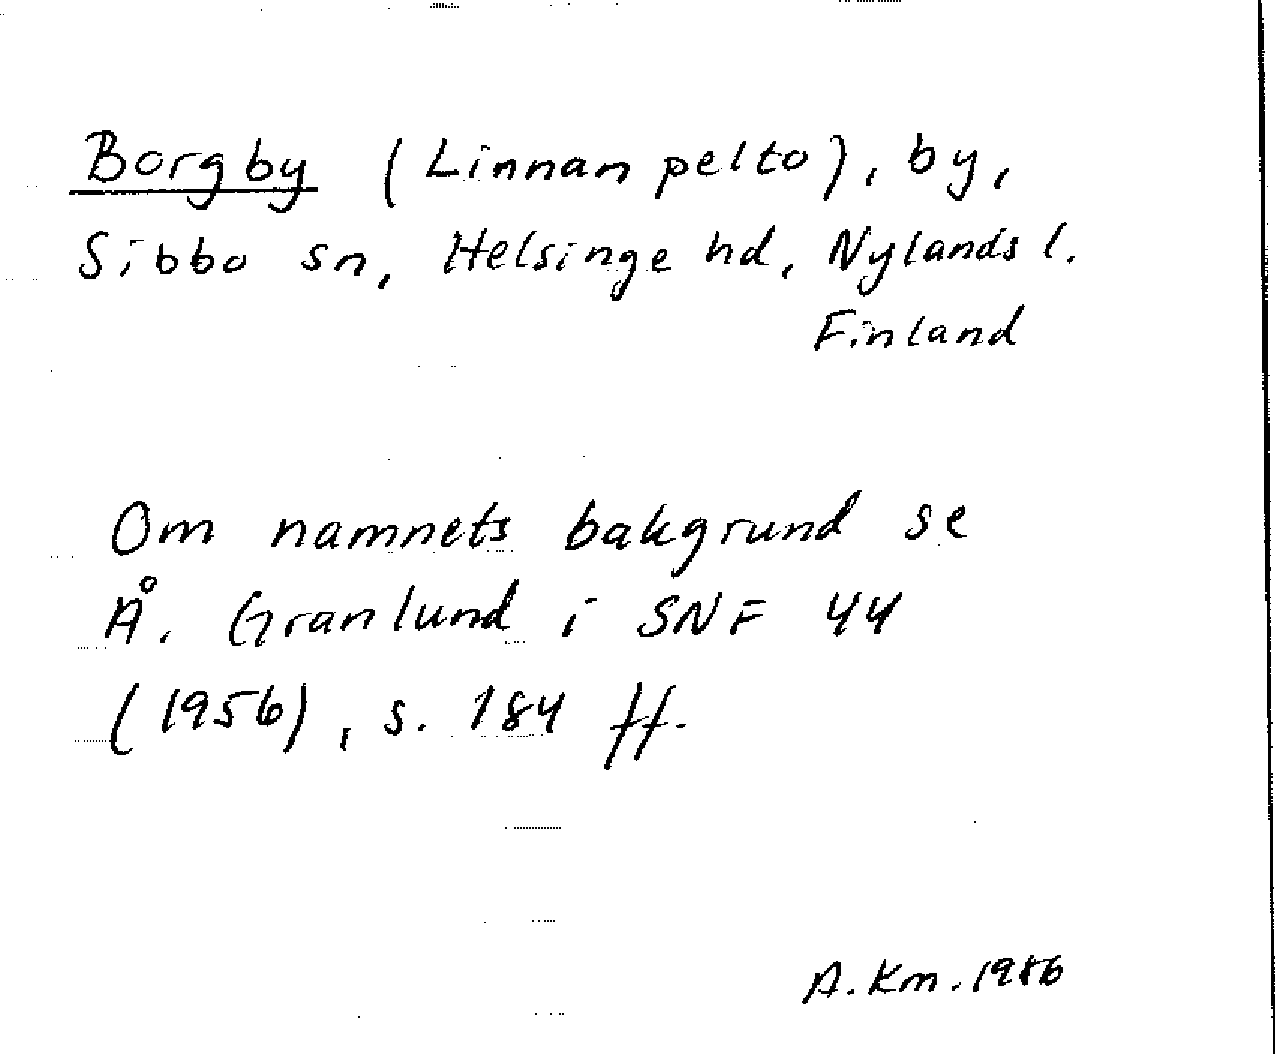 Borgby (Linnanpelto), by,
Sibbo sn, Helsinge hd, Nylands l.
Finland
Om namnets bakgrund se
Å. Granlund i SNF 44
(1956), s. 184 ff.
A. Km. 1986